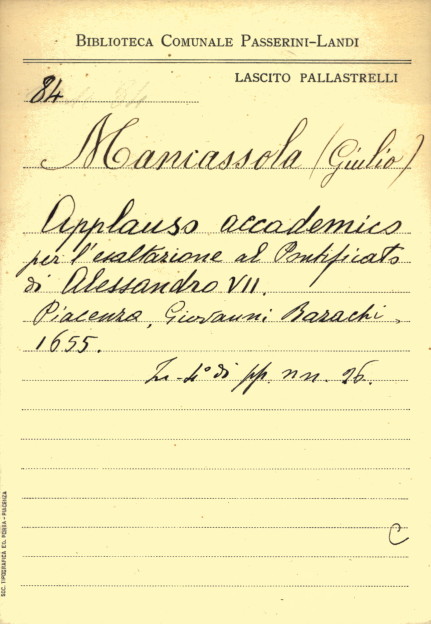 BIBLIOTECA COMUNALE PASSERINI-LANDI
LASCITO PALLASTRELLI
84
Mancassola (Giulio)
Applauso accademico
per l'esaltazione al Pontificato
di Alessandro VII.
Piacenza, Giovanni Bazachi,
1655.
In-4° di pp. nn. 26.
C
SOC. TIPOGRAFICA ED. PORTA - PIACENZA